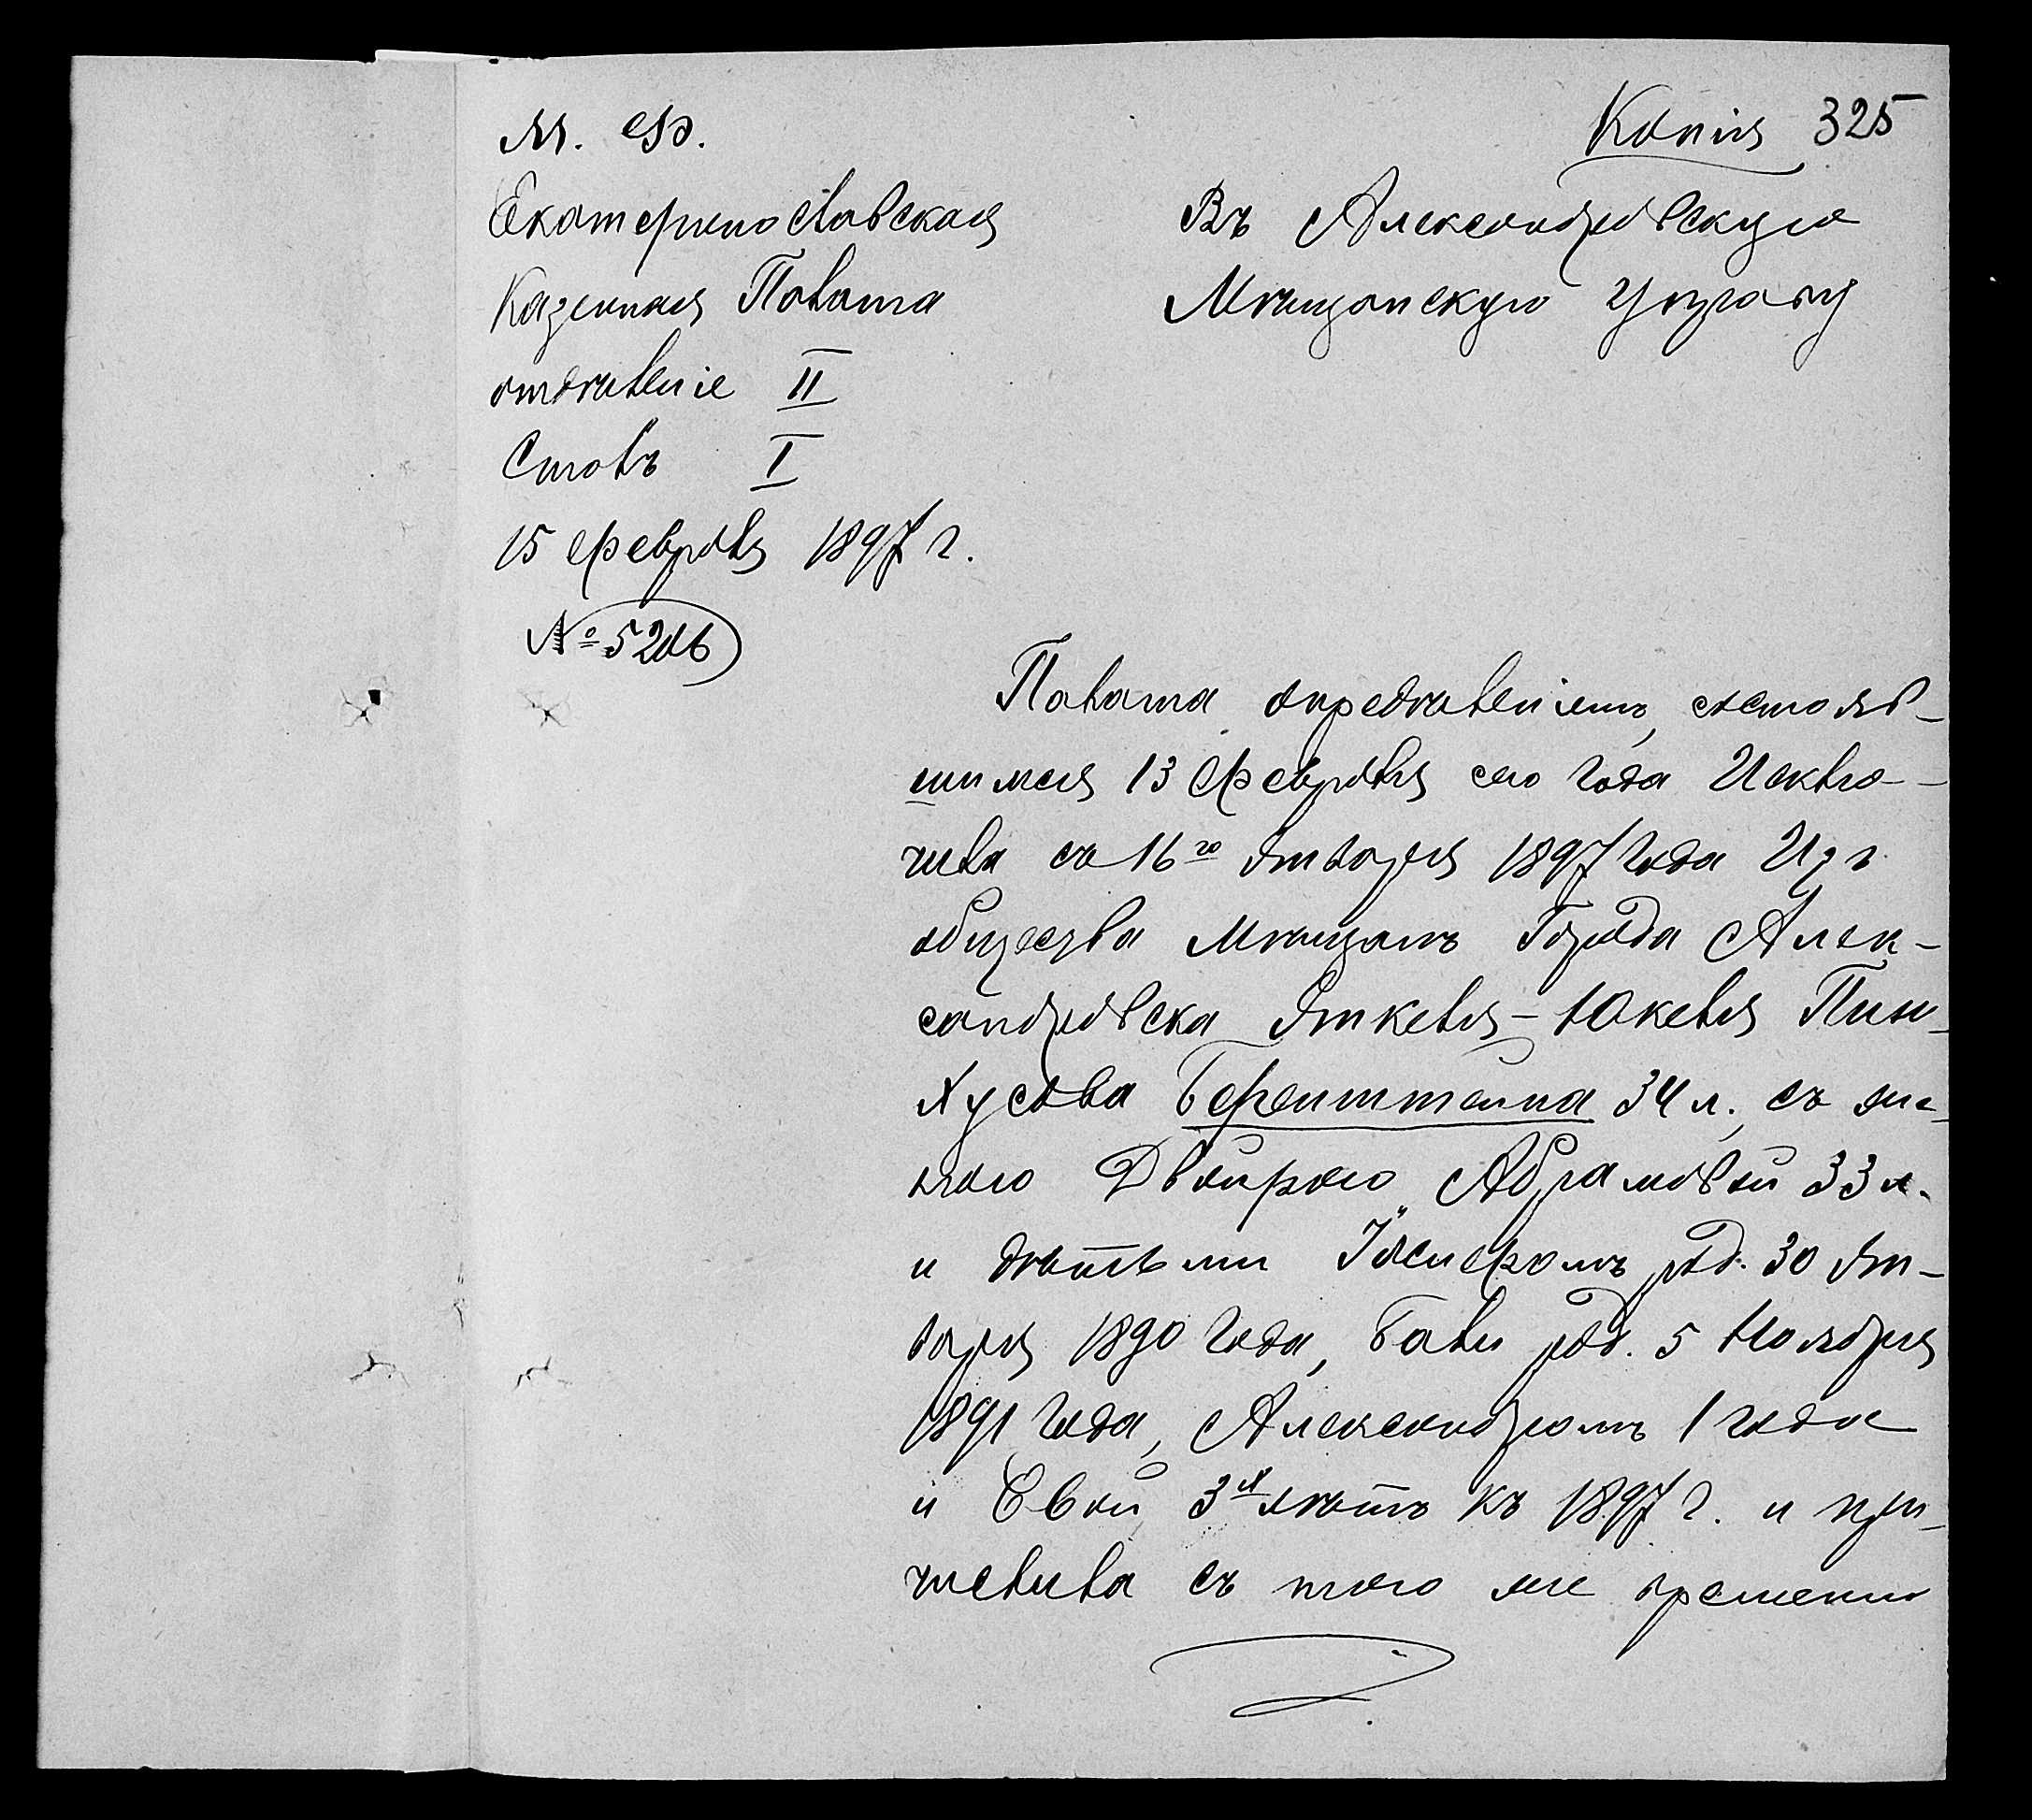 Копія 325
М. Ф.
Екатеринославская
Казенная Палата
отдѣленіе II
Столъ I
15 февраля 1897 г.
№ 5206
Въ Александровскую
Мѣщанскую Управу
Палата опредѣленіемъ, состояв-
шимся 13 февраля сего года Исклю-
чила съ 16го Января 1897 года Изъ
общества мѣщанъ Города Алек-
сандровска Янкеля-Юкеля Пин-
хусова Беренштейна 34 л., съ же-
ною Двейрою Абрамовой 33 л.
и дѣтьми Іосифомъ род. 30 Ян-
варя 1890 года, Бали род. 5 Ноября
1891 года, Александромъ 1 года
и Евой 3х лѣтъ къ 1897 г. и при-
числила съ того же времени